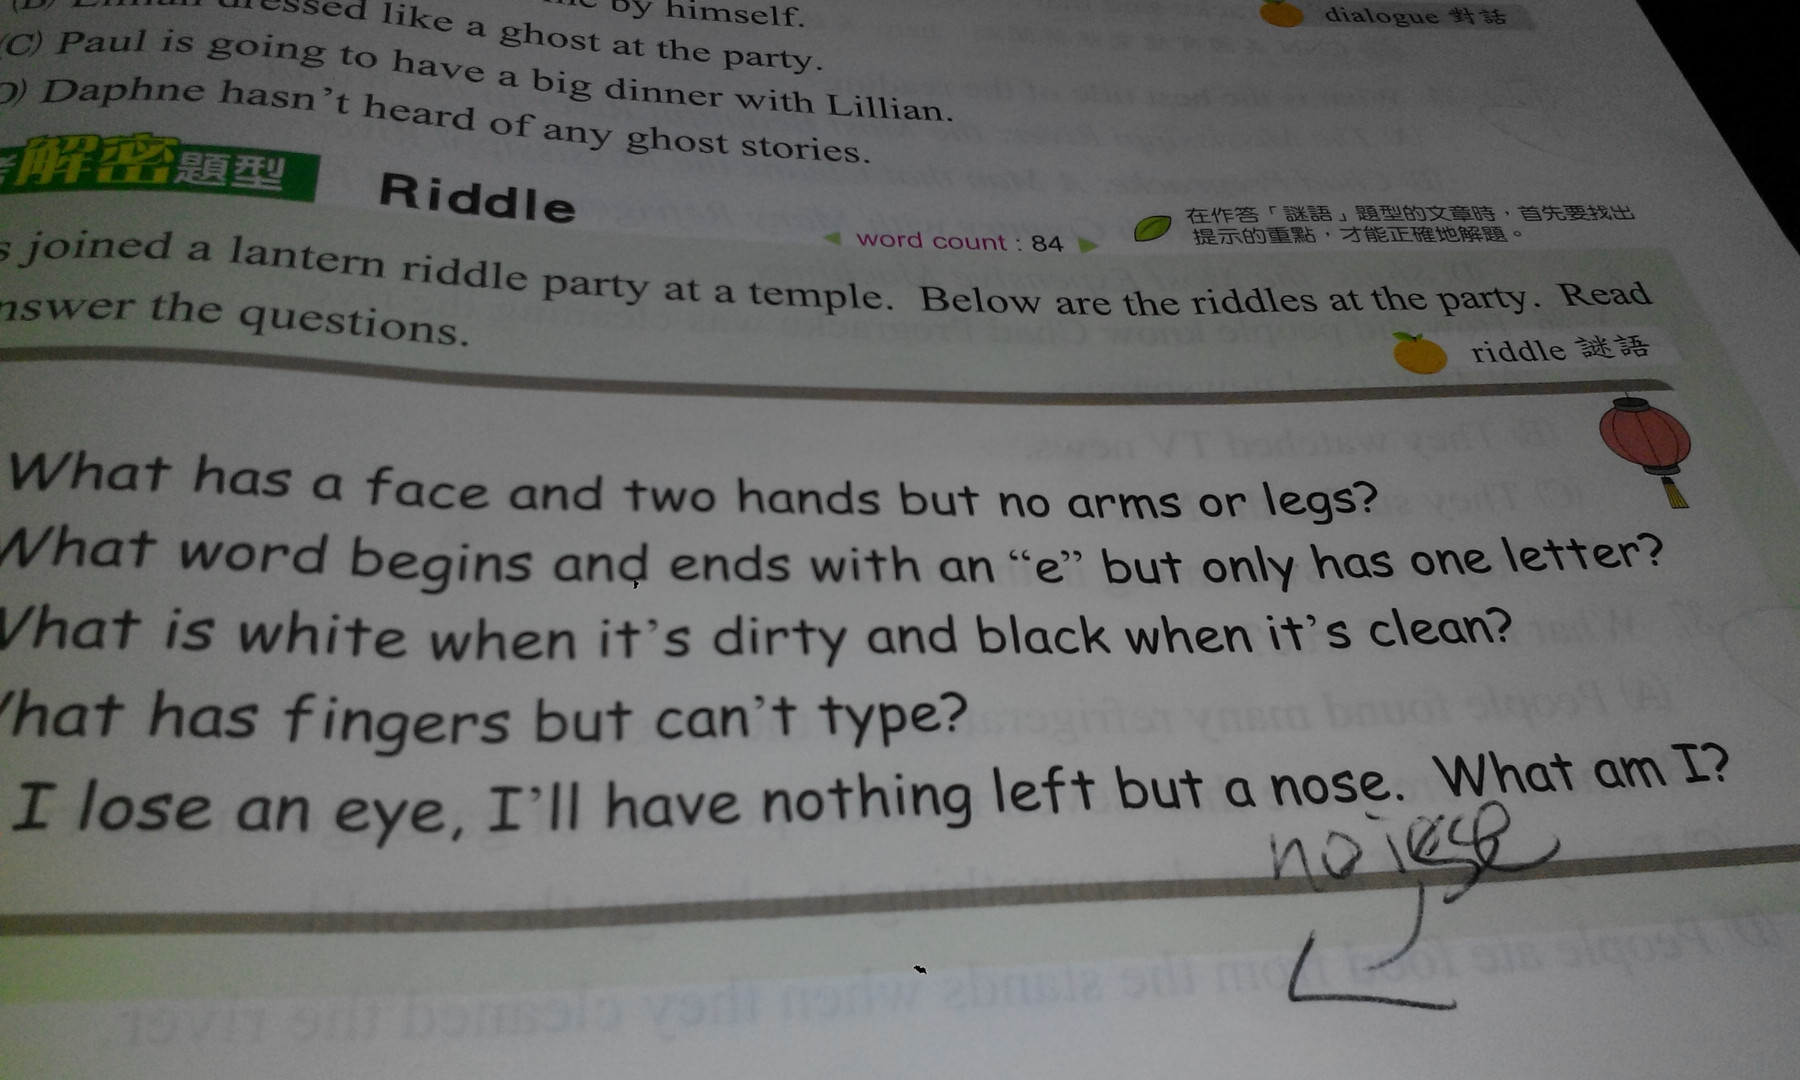 by himself.
dressed like a ghost at the party.
(C) Paul is going to have a big dinner with Lillian.
D) Daphne hasn't heard of any ghost stories.
dialogue 對話
解密題型
Riddle
word count : 84
在作答「謎語」題型的文章時，首先要找出
提示的重點，才能正確地解題。
s joined a lantern riddle party at a temple. Below are the riddles at the party. Read
nswer the questions.
riddle 謎語
What has a face and two hands but no arms or legs?
What word begins and ends with an “e” but only has one letter?
What is white when it's dirty and black when it's clean?
What has fingers but can't type?
I lose an eye, I'll have nothing left but a nose. What am I?